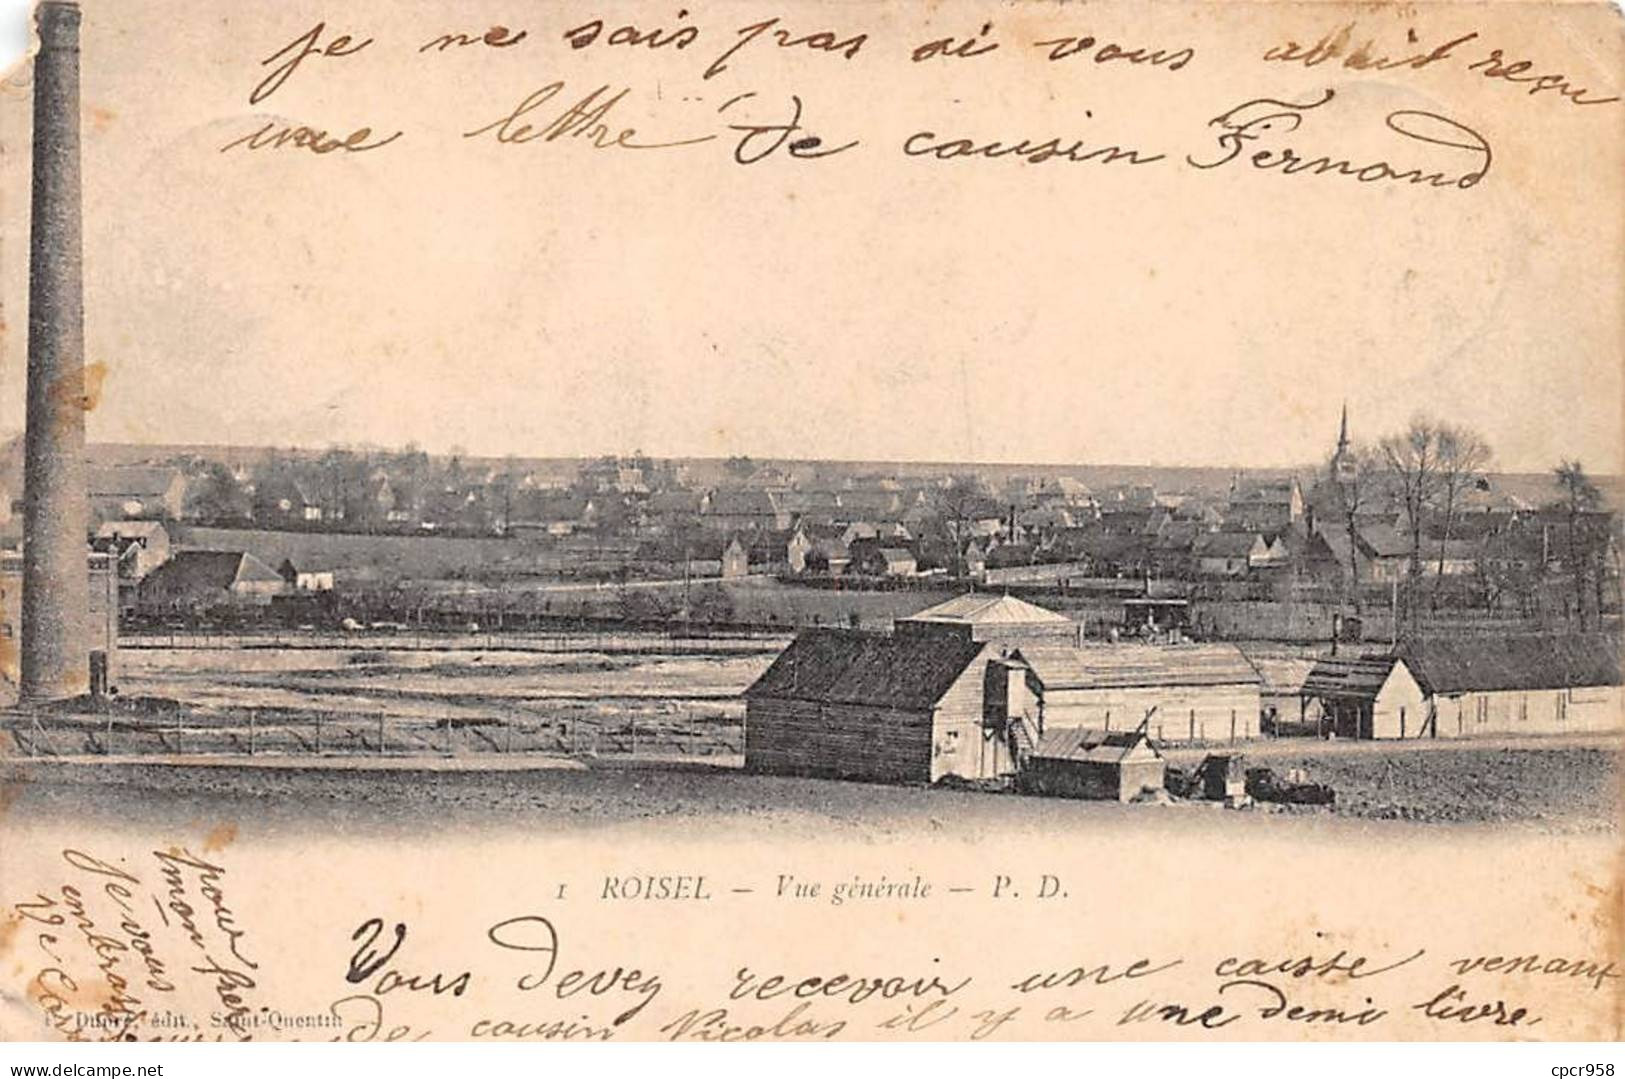 je ne sais pas si vous avait reçu
une lettre de cousin Fernand
1 ROISEL — Vue générale — P. D.
Vous devez recevoir une caisse venant
de cousin Nicolas il y a une demi livre
pour
mon frère
je vous
embrasse
P. Dupré, édit., Saint-Quentin
www.delcampe.net
cpcr958